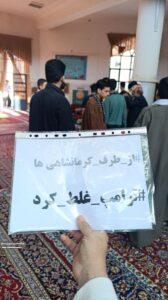 #از_طرف_کرمانشاهی ها
#ترامپ_غلط_کرد